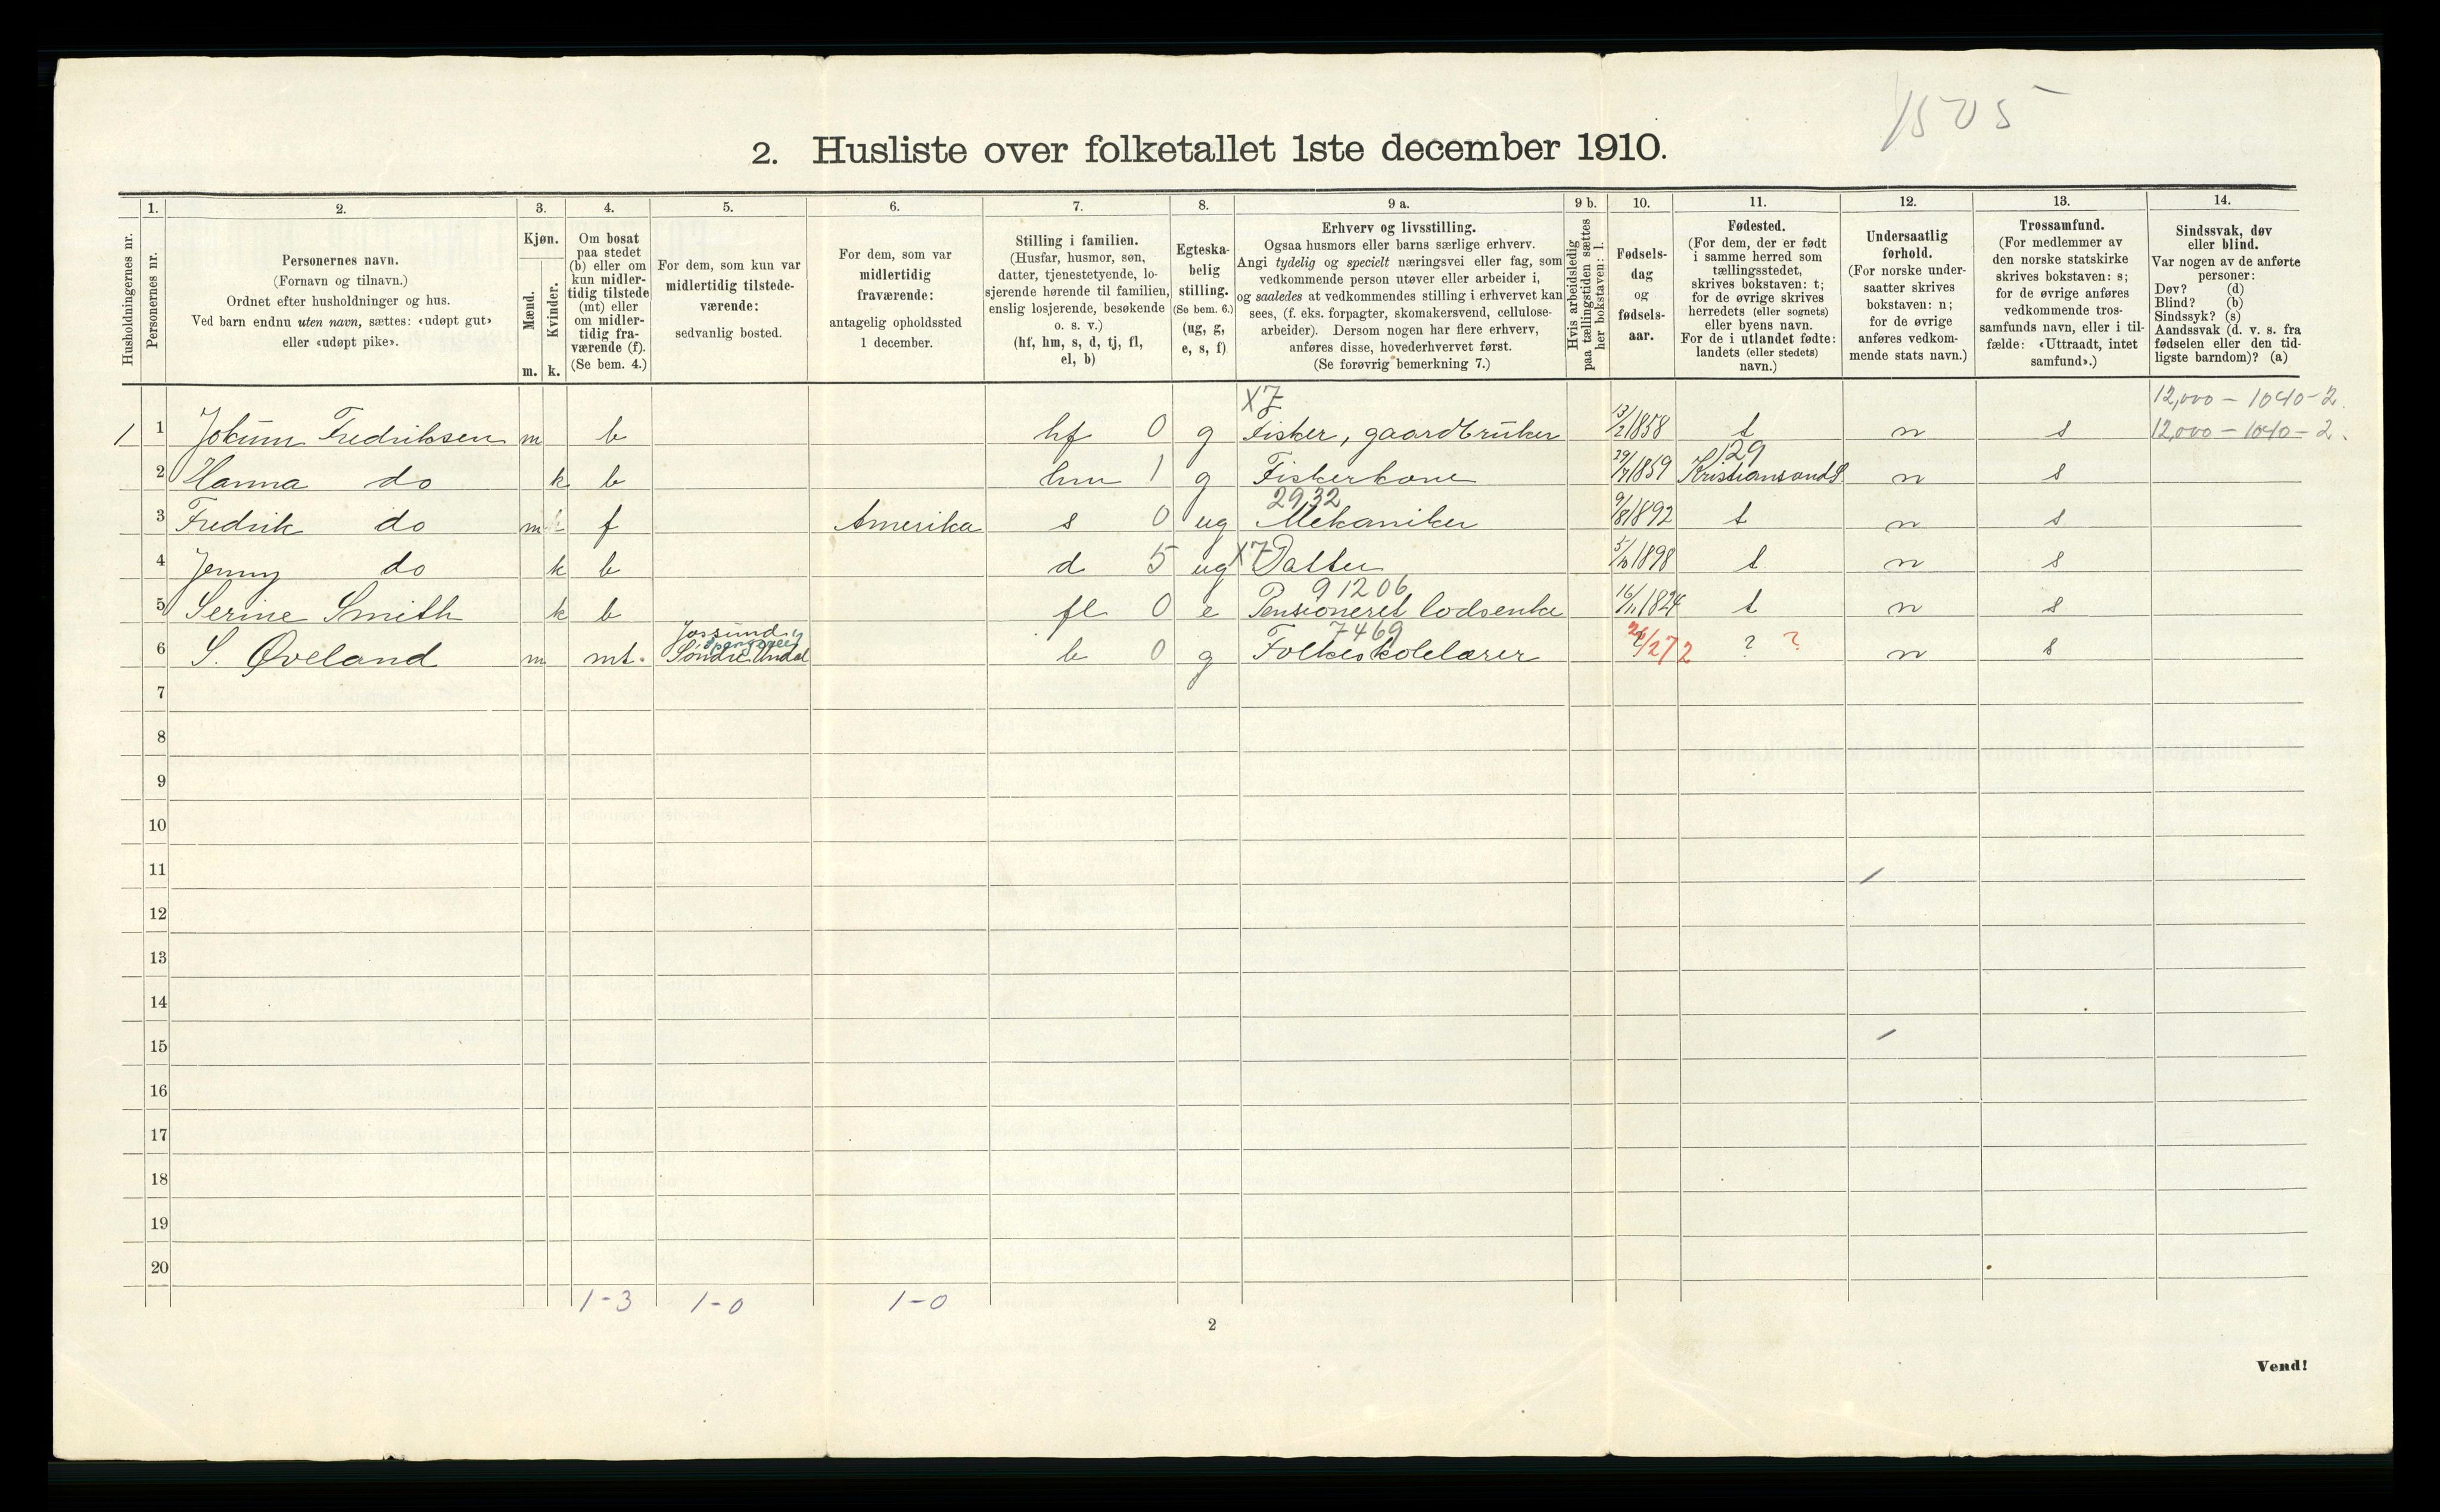 1505
2. Husliste over folketallet 1ste december 1910.
Husholdningernes nr.
1.
Personernes nr.
2.
Personernes navn.
(Fornavn og tilnavn.)
Ordnet efter husholdninger og hus.
Ved barn endnu uten navn, sættes: «udøpt gut»
eller «udøpt pike».
3.
Kjøn.
Mænd.
Kvinder.
m. k.
4.
Om bosat
paa stedet
(b) eller om
kun midler-
tidig tilstede
(mt) eller
om midler-
tidig fra-
værende (f).
(Se bem. 4.)
5.
For dem, som kun var
midlertidig tilstede-
værende:
sedvanlig bosted.
6.
For dem, som var
midlertidig
fraværende:
antagelig opholdssted
1 december.
7.
Stilling i familien.
(Husfar, husmor, søn,
datter, tjenestetyende, lo-
sjerende hørende til familien,
enslig losjerende, besøkende
o. s. v.)
(hf, hm, s, d, tj, fl,
el, b)
8.
Egteska-
belig
stilling.
(Se bem. 6.)
(ug, g,
e, s, f)
9 a.
Erhverv og livsstilling.
Ogsaa husmors eller barns særlige erhverv.
Angi tydelig og specielt næringsvei eller fag, som
vedkommende person utøver eller arbeider i,
og saaledes at vedkommendes stilling i erhvervet kan
sees, (f. eks. forpagter, skomakersvend, cellulose-
arbeider). Dersom nogen har flere erhverv,
anføres disse, hovederhvervet først.
(Se forøvrig bemerkning 7.)
9 b.
Hvis arbeidsledig
paa tællingstiden sættes
her bokstaven: l.
10.
Fødsels-
dag
og
fødsels-
aar.
11.
Fødested.
(For dem, der er født
i samme herred som
tællingsstedet,
skrives bokstaven: t;
for de øvrige skrives
herredets (eller sognets)
eller byens navn.
For de i utlandet fødte:
landets (eller stedets)
navn.)
12.
Undersaatlig
forhold.
(For norske under-
saatter skrives
bokstaven: n;
for de øvrige
anføres vedkom-
mende stats navn.)
13.
Trossamfund.
(For medlemmer av
den norske statskirke
skrives bokstaven: s;
for de øvrige anføres
vedkommende tros-
samfunds navn, eller i til-
fælde: «Uttraadt, intet
samfund».)
14.
Sindssvak, døv
eller blind.
Var nogen av de anførte
personer:
Døv? (d)
Blind? (b)
Sindssyk? (s)
Aandssvak (d. v. s. fra
fødselen eller den tid-
ligste barndom)? (a)
X7 12,000 - 1040 - 2.
1 1 Jokum Fredriksen m b hf 0 g Fisker, gaardbruker 13/2 1858 t n s 12,000 - 1040 - 2.
129
2 Hanna do k b hm 1 g Fiskerkone 1859 Kristiansand S. n s
2932
3 Fredrik do m f Amerika s 0 ug Mekaniker 9/8 1892 t n s
4 Jenny do k b d 5 ug X7 Datter 1898 t n s
91206
5 Serine Smith k b fl 0 e Pensioneret lodsenke 16/11 1824 t n s
Jossund
Spangereid 7469
6 S. Øveland m mt. Søndre Undal b 0 g Folkeskolelærer ? ? n s
7
8
9
10
11
12
13
14
15
16
17
18
19
20
1-3 1-0 1-0
2
Vend!